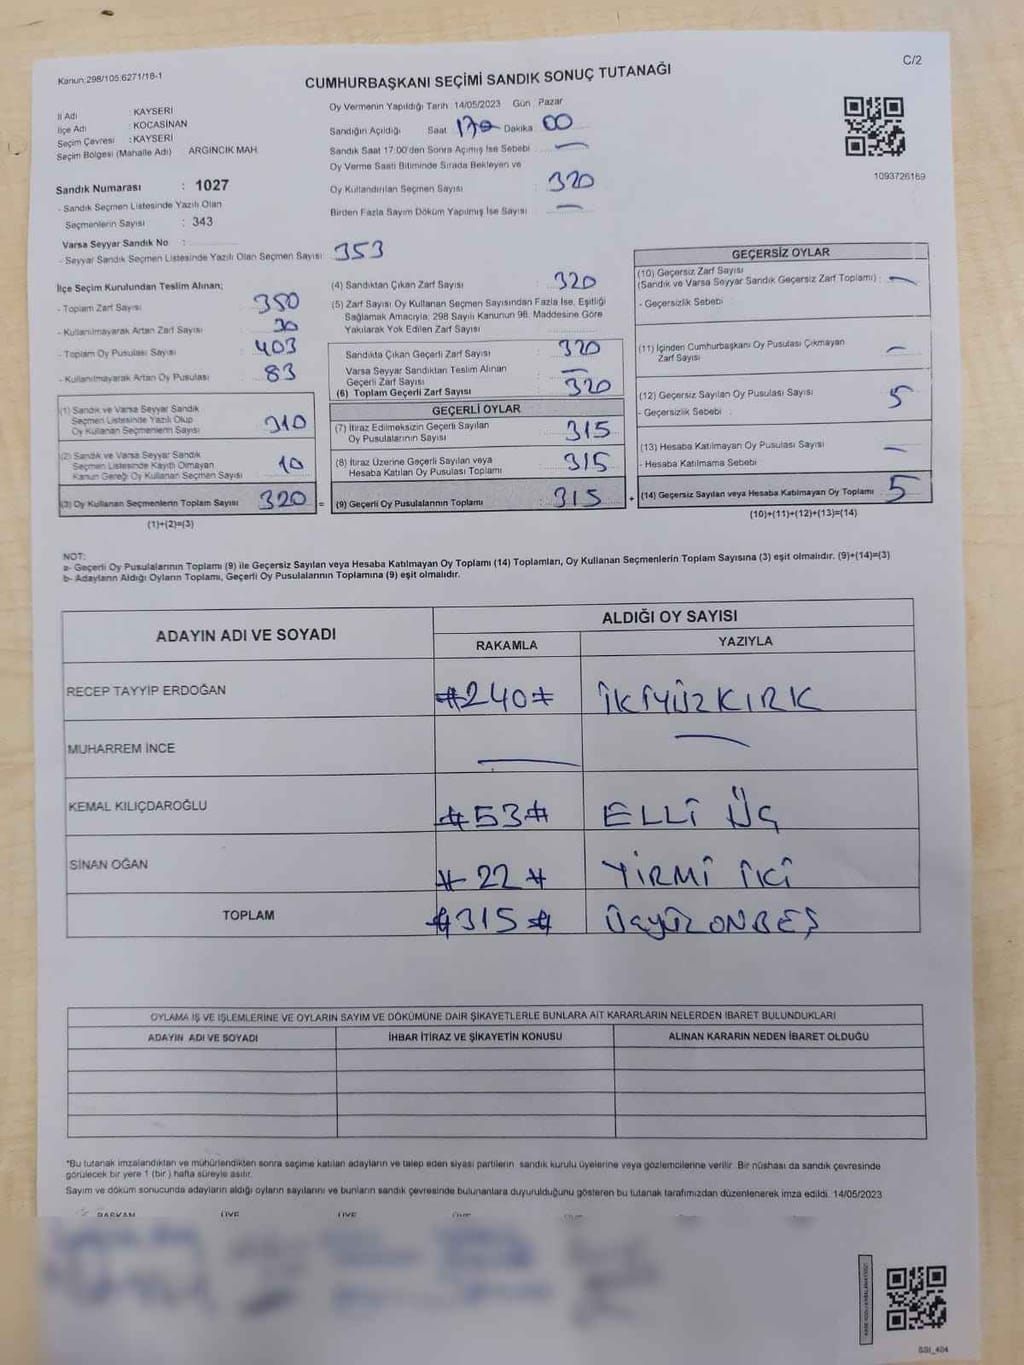 Kanun:298/105,6271/18-1
C/2
CUMHURBAŞKANI SEÇİMİ SANDIK SONUÇ TUTANAĞI
İl Adı : KAYSERİ
İlçe Adı : KOCASİNAN
Seçim Çevresi : KAYSERİ
Seçim Bölgesi (Mahalle Adı) ARGINCIK MAH.
Sandık Numarası : 1027
- Sandık Seçmen Listesinde Yazılı Olan
Seçmenlerin Sayısı : 343
Varsa Seyyar Sandık No :
- Seyyar Sandık Seçmen Listesinde Yazılı Olan Seçmen Sayısı: 353
Oy Vermenin Yapıldığı Tarih 14/05/2023 Gün Pazar
Sandığın Açıldığı Saat Dakika 00
Sandık Saat 17:00'den Sonra Açılmış İse Sebebi —
Oy Verme Saati Bitiminde Sırada Bekleyen ve
Oy Kullandırılan Seçmen Sayısı : 320
Birden Fazla Sayım Döküm Yapılmış İse Sayısı : —
1093726169
İlçe Seçim Kurulundan Teslim Alınan;
- Toplam Zarf Sayısı : 350
- Kullanılmayarak Artan Zarf Sayısı : 30
- Toplam Oy Pusulası Sayısı : 403
- Kullanılmayarak Artan Oy Pusulası : 83
(1) Sandık ve Varsa Seyyar Sandık
Seçmen Listesinde Yazılı Olup
Oy Kullanan Seçmenlerin Sayısı : 310
(2) Sandık ve Varsa Seyyar Sandık
Seçmen Listesinde Kayıtlı Olmayan
Kanun Gereği Oy Kullanan Seçmen Sayısı : 10
(3) Oy Kullanan Seçmenlerin Toplam Sayısı : 320 =
(1)+(2)=(3)
(4) Sandıktan Çıkan Zarf Sayısı : 320
(5) Zarf Sayısı Oy Kullanan Seçmen Sayısından Fazla İse, Eşitliği
Sağlamak Amacıyla; 298 Sayılı Kanunun 98. Maddesine Göre
Yakılarak Yok Edilen Zarf Sayısı :
Sandıkta Çıkan Geçerli Zarf Sayısı : 320
Varsa Seyyar Sandıktan Teslim Alınan
Geçerli Zarf Sayısı : —
(6) Toplam Geçerli Zarf Sayısı : 320
GEÇERLİ OYLAR
(7) İtiraz Edilmeksizin Geçerli Sayılan
Oy Pusulalarının Sayısı : 315
(8) İtiraz Üzerine Geçerli Sayılan veya
Hesaba Katılan Oy Pusulası Toplamı : 315
(9) Geçerli Oy Pusulalarının Toplamı : 315 +
GEÇERSİZ OYLAR
(10) Geçersiz Zarf Sayısı
(Sandık ve Varsa Seyyar Sandık Geçersiz Zarf Toplamı) : —
- Geçersizlik Sebebi :
(11) İçinden Cumhurbaşkanı Oy Pusulası Çıkmayan
Zarf Sayısı : —
(12) Geçersiz Sayılan Oy Pusulası Sayısı : 5
- Geçersizlik Sebebi :
(13) Hesaba Katılmayan Oy Pusulası Sayısı : —
- Hesaba Katılmama Sebebi :
(14) Geçersiz Sayılan veya Hesaba Katılmayan Oy Toplamı : 5
(10)+(11)+(12)+(13)=(14)
NOT:
a- Geçerli Oy Pusulalarının Toplamı (9) ile Geçersiz Sayılan veya Hesaba Katılmayan Oy Toplamı (14) Toplamları, Oy Kullanan Seçmenlerin Toplam Sayısına (3) eşit olmalıdır. (9)+(14)=(3)
b- Adayların Aldığı Oyların Toplamı, Geçerli Oy Pusulalarının Toplamına (9) eşit olmalıdır.
ADAYIN ADI VE SOYADI
ALDIĞI OY SAYISI
RAKAMLA YAZIYLA
RECEP TAYYİP ERDOĞAN #240# İKİYÜZKIRK
MUHARREM İNCE — —
KEMAL KILIÇDAROĞLU #53# ELLİ ÜÇ
SİNAN OĞAN #22# YİRMİ İKİ
TOPLAM #315# ÜÇYÜZONBEŞ
OYLAMA İŞ VE İŞLEMLERİNE VE OYLARIN SAYIM VE DÖKÜMÜNE DAİR ŞİKAYETLERLE BUNLARA AİT KARARLARIN NELERDEN İBARET BULUNDUKLARI
ADAYIN ADI VE SOYADI İHBAR İTİRAZ VE ŞİKAYETİN KONUSU ALINAN KARARIN NEDEN İBARET OLDUĞU
*Bu tutanak imzalandıktan ve mühürlendikten sonra seçime katılan adayların ve talep eden siyasi partilerin sandık kurulu üyelerine veya gözlemcilerine verilir. Bir nüshası da sandık çevresinde
görülecek bir yere 1 (bir) hafta süreyle asılır.
Sayım ve döküm sonucunda adayların aldığı oyların sayılarını ve bunların sandık çevresinde bulunanlara duyurulduğunu gösteren bu tutanak tarafımızdan düzenlenerek imza edildi. 14/05/2023
BAŞKAN ÜYE ÜYE ÜYE